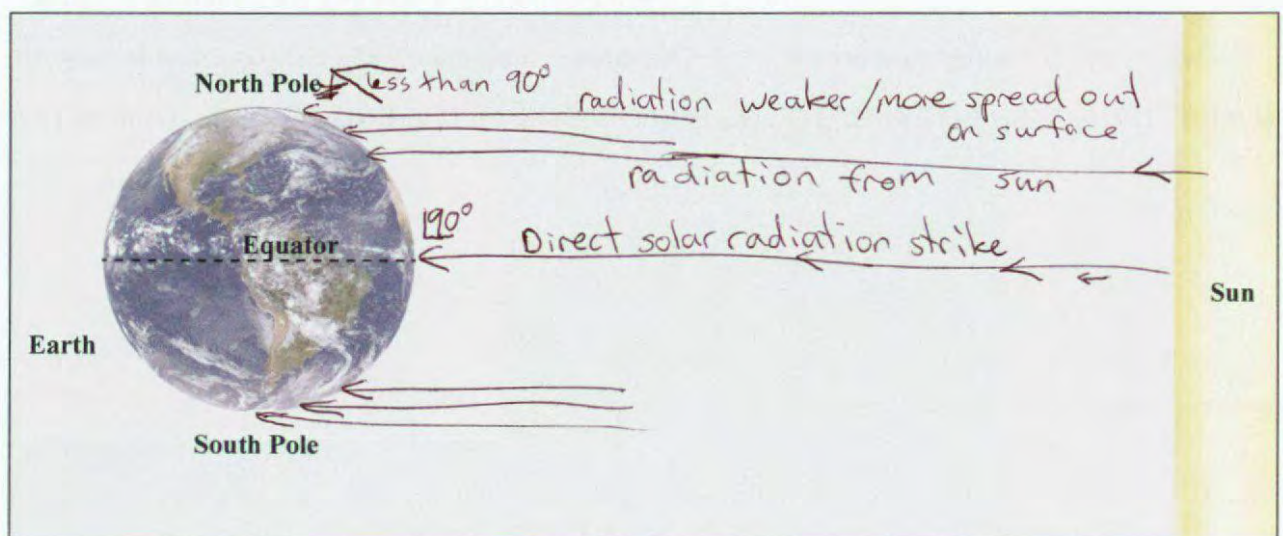 North Pole
less than 90°
radiation weaker/more spread out
on surface
radiation from sun
90°
Equator
Direct solar radiation strike
Sun
Earth
South Pole